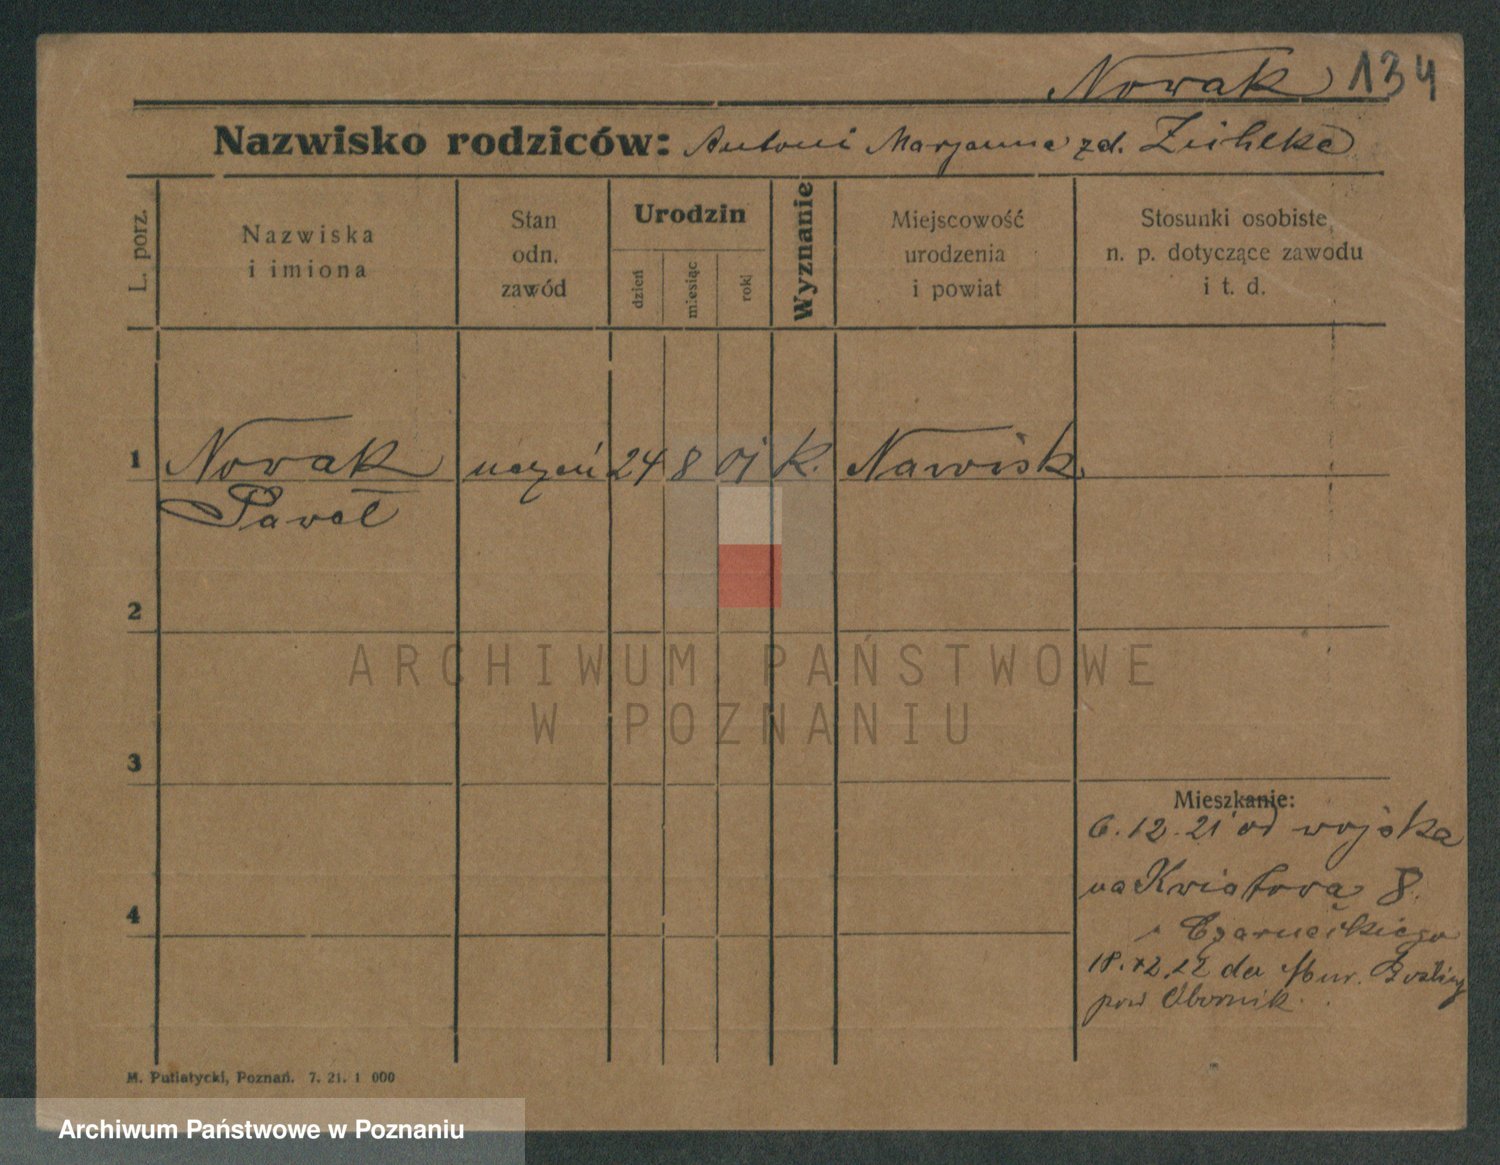 Nowak 134
Nazwisko rodziców: Antoni Maryanna zd.
L. porz.
Nazwiska
i imiona
Stan
odn.
zawód
Urodzin
dzień
miesiąc
rok
Wyznanie
Miejscowość
urodzenia
i powiat
Stosunki osobiste,
n. p. dotyczące zawodu
i t. d.
1 Nowak uczeń 24 8 01 k. Nawisk.
Paweł
2
ARCHIWUM PAŃSTWOWE
W POZNANIU
3
Mieszkanie:
6.12.21 od wojska
na Kwiatową 8.
4
Czarneckiego
18.12.22 do Mur. Goślin
pow Obornik.
M. Putiatycki, Poznań. 7. 21. 1 000
Archiwum Państwowe w Poznaniu